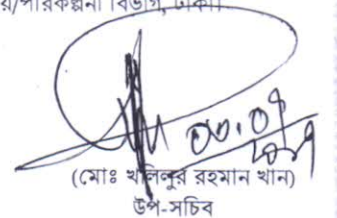 য়/পরিকল্পনা বিভাগ, ঢাকা।
(মোঃ খলিলুর রহমান খান)
উপ-সচিব